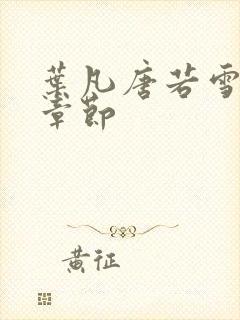 葉凡唐若雪
章節
黃征